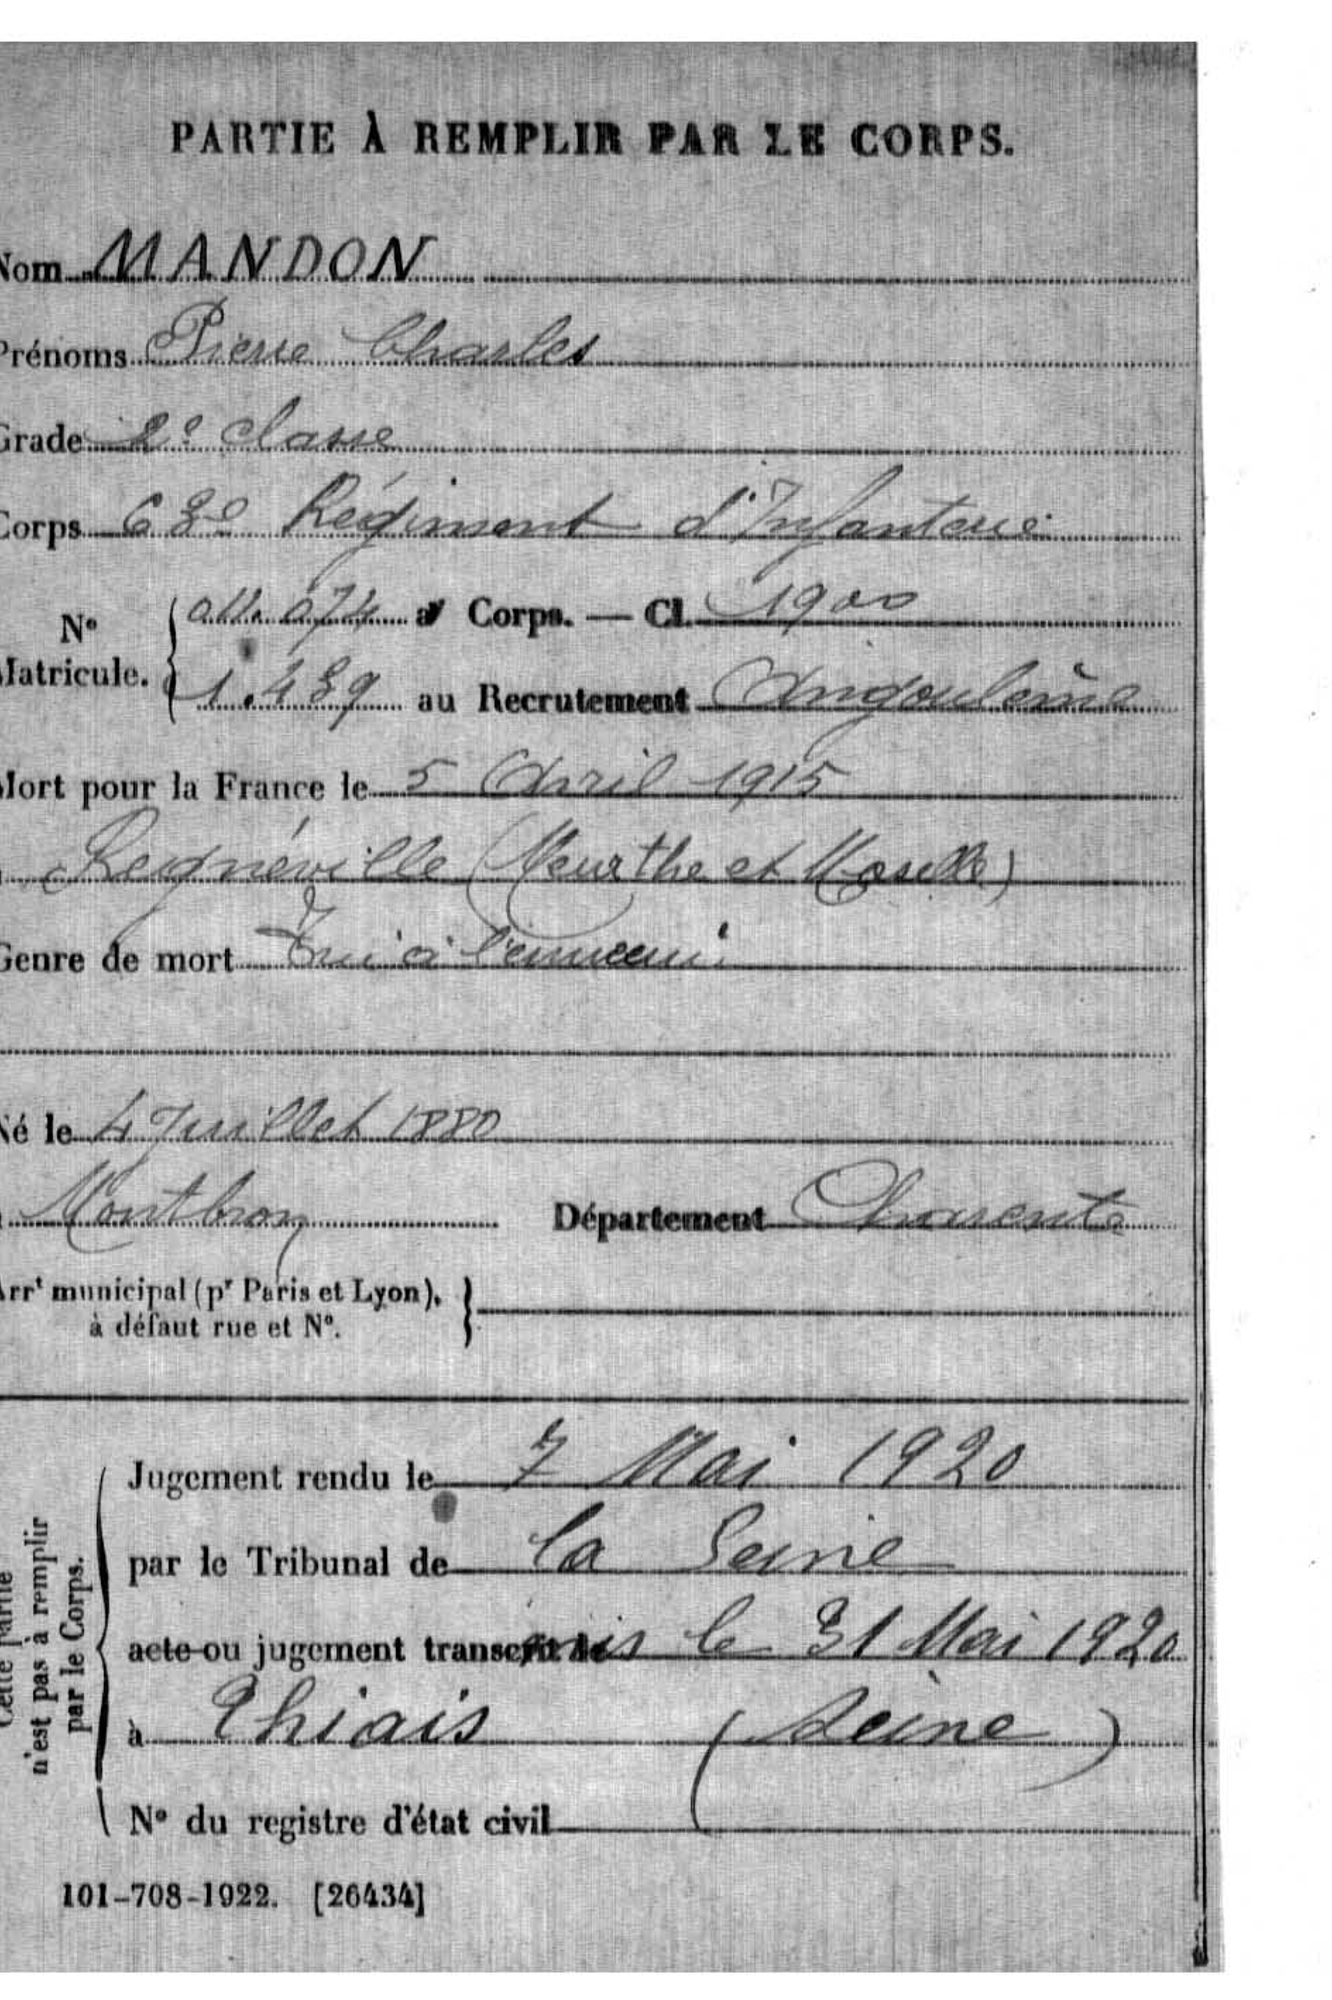 PARTIE À REMPLIR PAR LE CORPS.
Nom MANDON
Prénoms Pierre Charles
Grade 2e classe
Corps 63e Régiment d'Infanterie
N° Matricule.
011.074 au Corps. — Cl. 1900
1.439 au Recrutement Angoulème
Mort pour la France le 5 Avril 1915
Regnéville (Meurthe et Moselle)
Genre de mort Tué à l'ennemi
Né le 4 Juillet 1880
Montbron Département Charente
Arrt municipal (pr Paris et Lyon),
à défaut rue et N°.
Cette partie
n'est pas à remplir
par le Corps.
Jugement rendu le 7 Mai 1920
par le Tribunal de la Seine
acte ou jugement transcrit le 31 Mai 1920
à Thiais (Seine)
N° du registre d'état civil
101-708-1922. [26434]